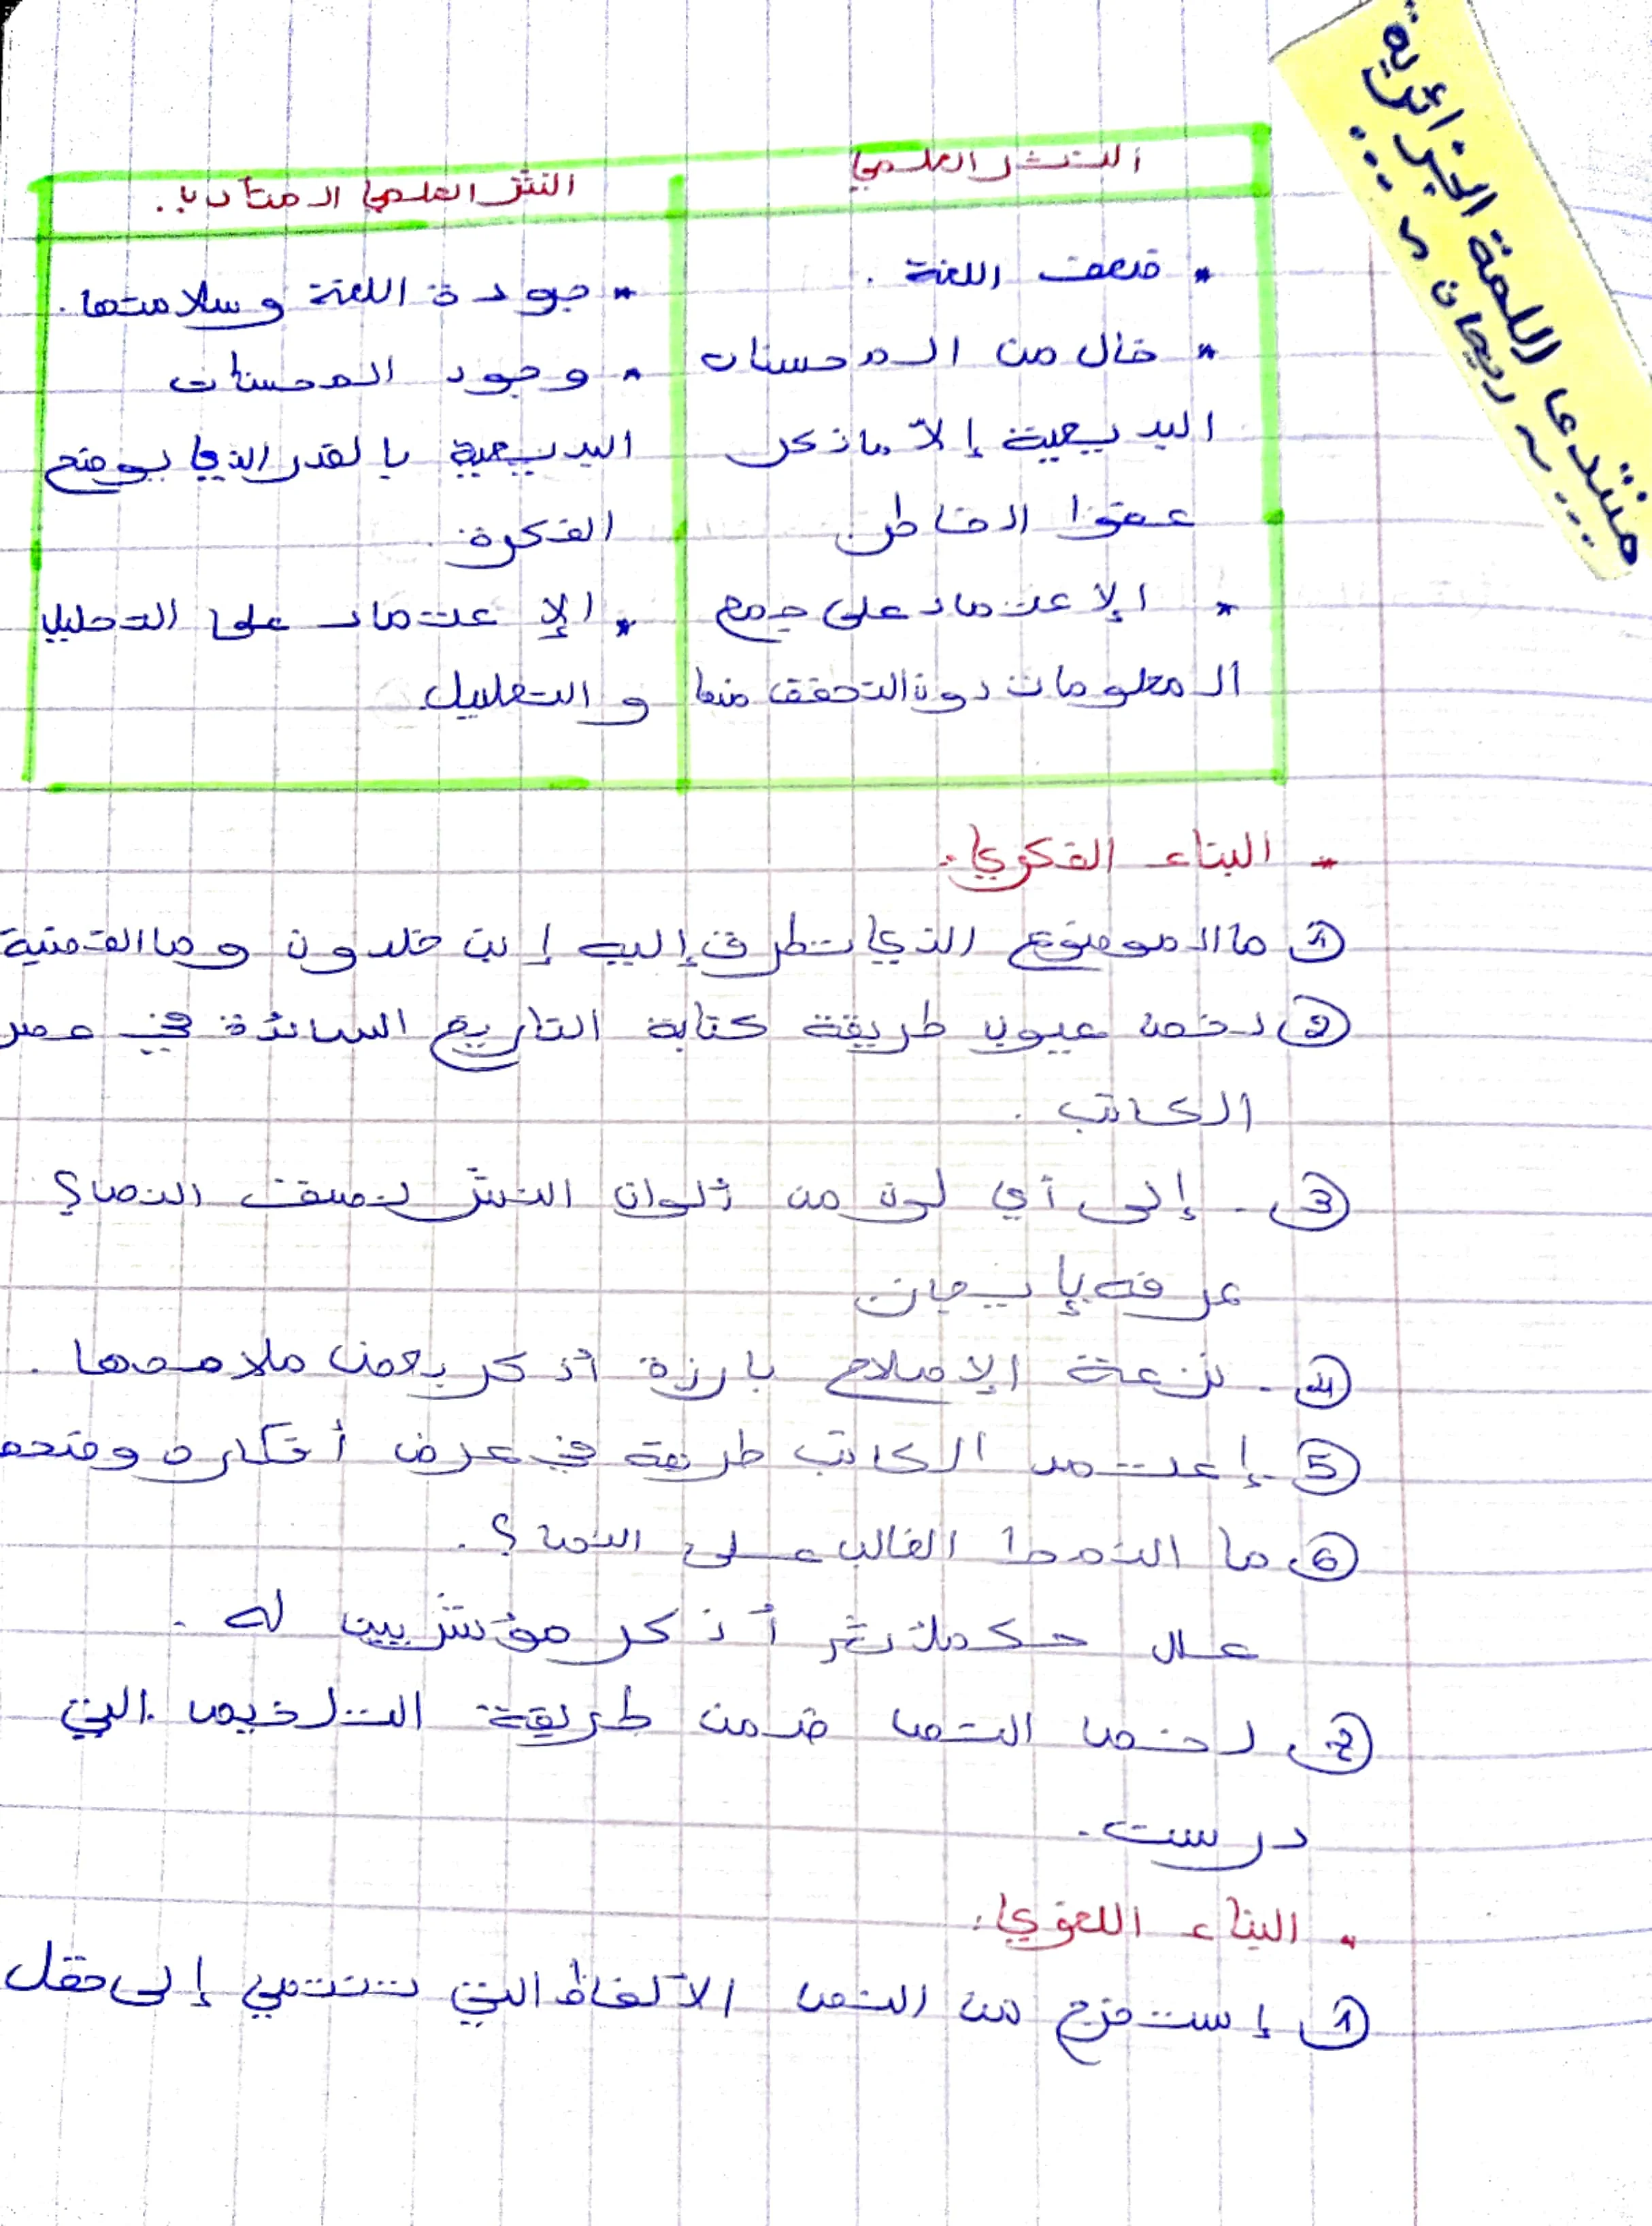 منتدى اللمة الجزائرية
ريحان
النثر العلمي
النثر العلمي المتأدب.
* ضعف اللغة.
* خال من المحسنات
البديعية إلا ماذكر
عفوا الخاطر
* الإعتماد على جمع
المعلومات دون التحقق منها
* جودة اللغة وسلامتها.
* وجود المحسنات
البديعية بالقدر الذي يوضح
الفكرة.
* الإعتماد على التحليل
والتعليل.
* البناء الفكري:
1 ما الموضوع الذي تطرق إليه إبن خلدون وما القضية
2 لخص عيوب طريقة كتابة التاريخ السائدة في عصر
الكاتب.
3. إلى أي لون من ألوان النثر نصنف النص؟
عرفه بإيجاز
4. نزعة الإصلاح بارزة أذكر بعض ملامحها.
5. إعتمد الكاتب طريقة في عرض أفكاره وضحها
6 ما النمط الغالب على النص؟.
علل حكمك ثم أذكر مؤشريين له.
7 لخص النص ضمن طريقة التلخيص التي
درست.
* البناء اللغوي:
1 إستخرج من النص الألفاظ التي تنتمي إلى حقل